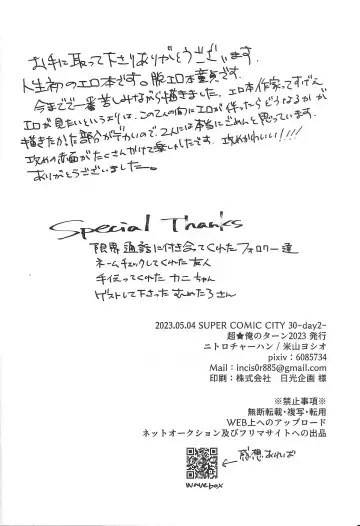 お手に取って下さりありがとうございます。
人生初のエロ本です。脱エロ本童貞です。
今までで一番苦しみながら描きました。エロ本作家ってすげえ
エロが見たいというよりは、この2人の間にエロが伴ったらどうなるかが
描きたかった部分がデカいので、2人には本当にごめんと思っています。
攻めの赤面がたくさんかけて楽しかったです。攻めかわいい!!!!
ありがとうございました。
Special Thanks
限界通話に付き合ってくれたフォロワー達
ネームチェックしてくれた友人
手伝ってくれた カニちゃん
ゲストして下さった むめたろさん
2023.05.04 SUPER COMIC CITY 30-day2-
超★俺のターン2023
ニトロチャーハン / 米山ヨシオ
pixiv：6085734
Mail：incis0r885@gmail.com
印刷：株式会社　日光企画 様
※禁止事項※
無断転載・複写・転用
WEB上へのアップロード
ネットオークション及びフリマサイトへの出品
感想あれば
wavebox